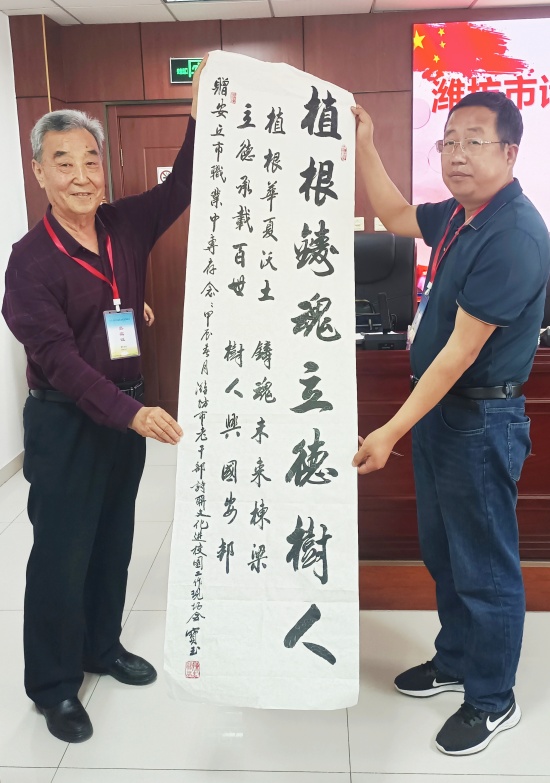 潍坊市
植根鑄魂立德樹人
植根華夏沃土 鑄魂未来棟梁
立德承載百世 樹人興國安邦
贈安丘市職業中專存念 甲辰春月 潍坊市老干部詩聯文化進校園工作現場会 寶玉